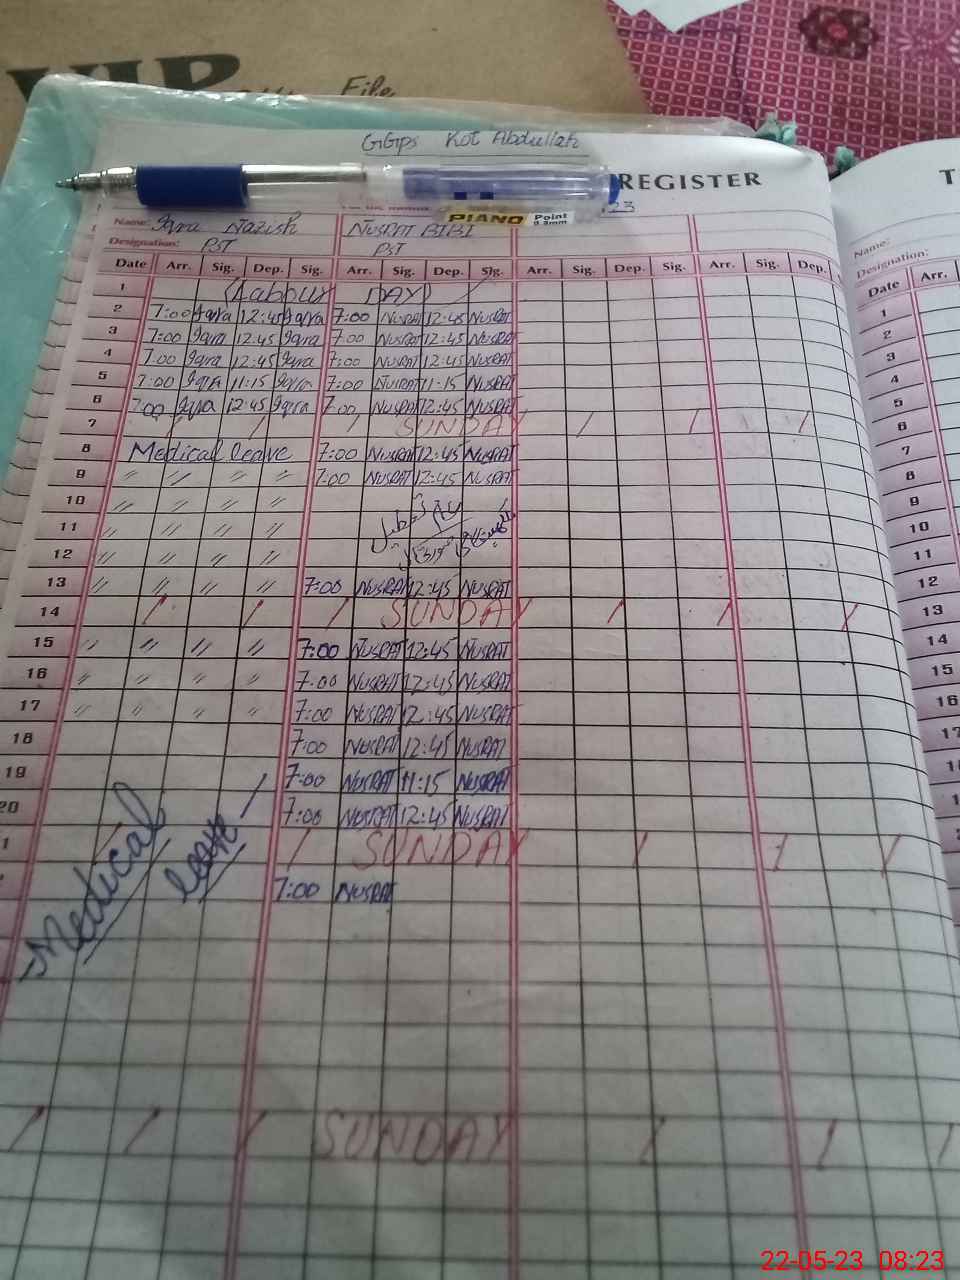 VIP
File
GGPS Kot Abdullah
REGISTER
T
PIANO Point
0.8mm
23
Name: Iqra Nazish NUSRAT BIBI
Designation: PST PST
Name:
Designation:
Date Arr. Sig. Dep. Sig. Arr. Sig. Dep. Sig. Arr. Sig. Dep. Sig. Arr. Sig. Dep.
Date Arr.
1 (Labour DAY)
2 7:00 Iqra 12:45 Iqra 7:00 NUSRAT 12:45 NUSRAT
3 7:00 Iqra 12:45 Iqra 7:00 NUSRAT 12:45 NUSRAT
4 7:00 Iqra 12:45 Iqra 7:00 NUSRAT 12:45 NUSRAT
5 7:00 Iqra 11:15 Iqra 7:00 NUSRAT 11:15 NUSRAT
6 7:00 Iqra 12:45 Iqra 7:00 NUSRAT 12:45 NUSRAT
7 / / / SUNDAY / / /
8 Medical leave 7:00 NUSRAT 12:45 NUSRAT
9 " " " " 7:00 NUSRAT 12:45 NUSRAT
10 " " " " عام تعطیل
11 " " " "
12 " " " "
13 " " " " 7:00 NUSRAT 12:45 NUSRAT
14 / / / SUNDAY / / /
15 " " " " 7:00 NUSRAT 12:45 NUSRAT
16 " " " " 7:00 NUSRAT 12:45 NUSRAT
17 " " " " 7:00 NUSRAT 12:45 NUSRAT
18 7:00 NUSRAT 12:45 NUSRAT
19 7:00 NUSRAT 11:15 NUSRAT
20 7:00 NUSRAT 12:45 NUSRAT
1 / SUNDAY / / /
7:00 NUSRAT
Medical
leave
/ / / SUNDAY / / /
1
2
3
4
5
6
7
8
9
10
11
12
13
14
15
16
17
22-05-23 08:23